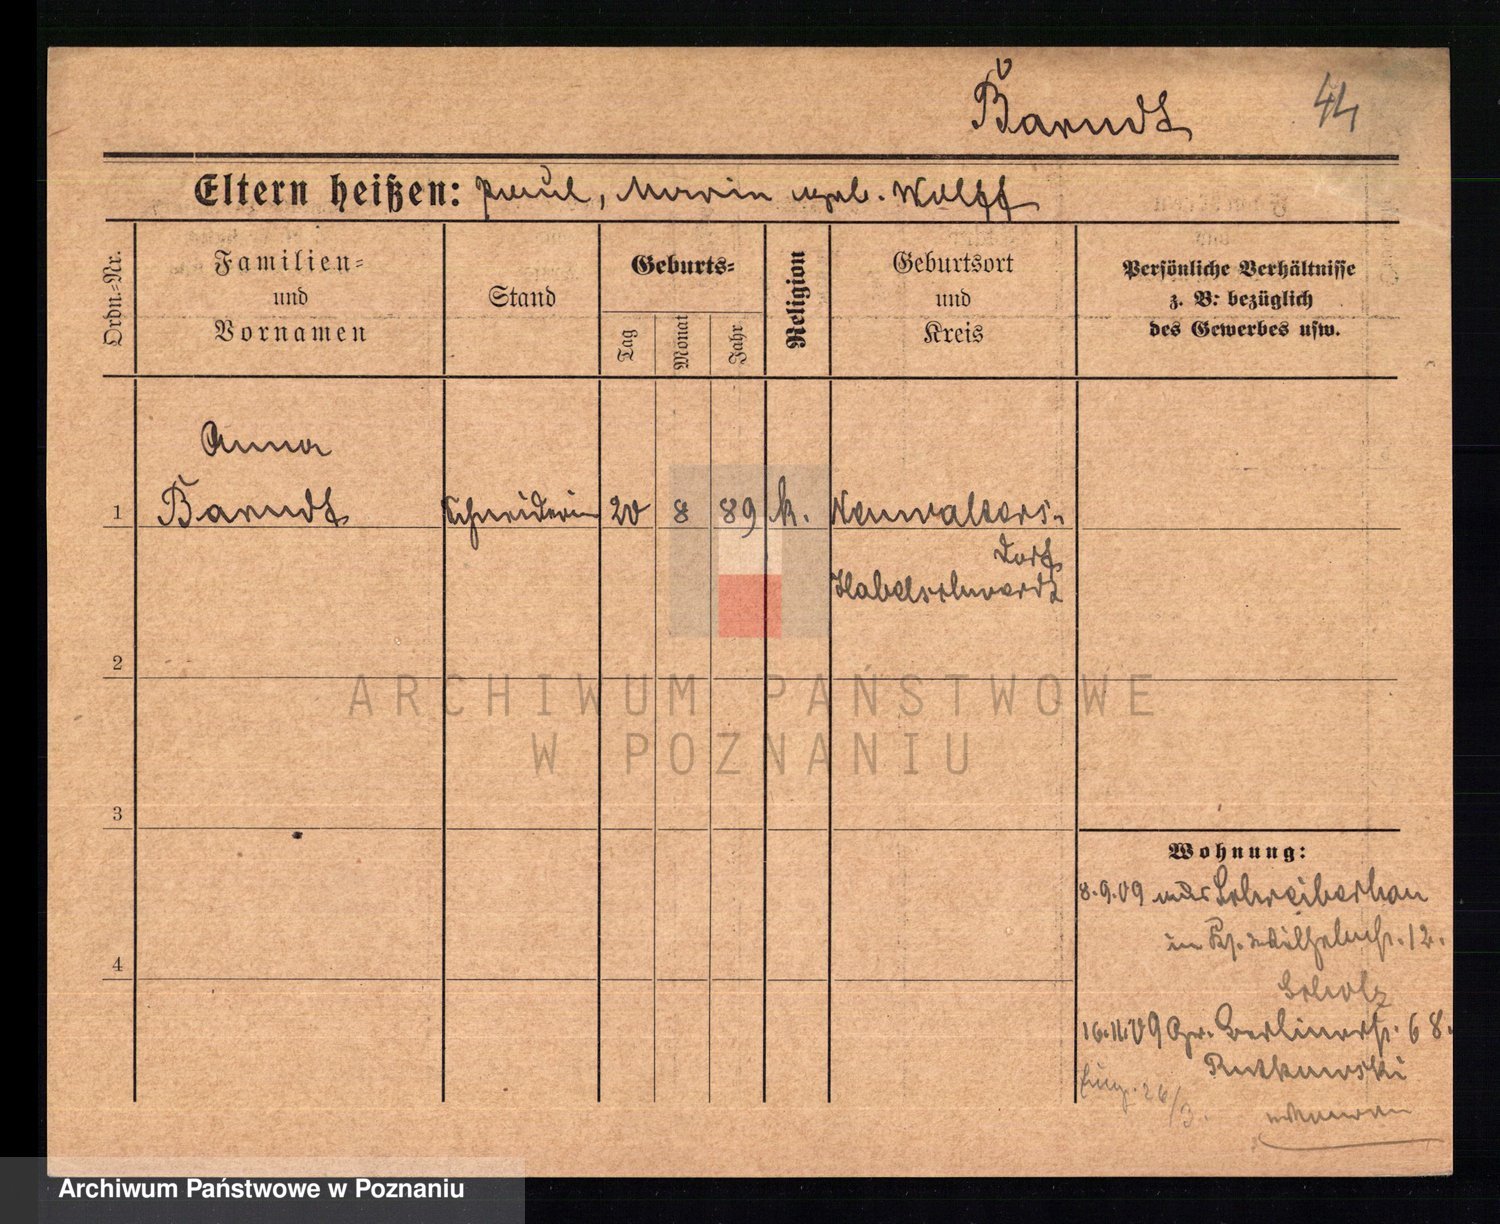 Barndt
44
Eltern heißen: Paul, Maria geb. Wolff
Ordn.-Nr.
Familien-
und
Vornamen
Stand
Geburts-
Tag
Monat
Jahr
Religion
Geburtsort
und
Kreis
Persönliche Verhältnisse
z. B. bezüglich
des Gewerbes usw.
Anna
1 Barndt Schneiderin 20 8 89 k. Neuwalters-
dorf
Habelschwerdt
2
3
4
Wohnung:
8.9.09 aus Schreiberhau
in Ks. Wilhelmstr. 12.
Scholz
16.11.09 Gr. Berlinerstr. 68.
Rutkowski
26/3.
ARCHIWUM PAŃSTWOWE
W POZNANIU
Archiwum Państwowe w Poznaniu